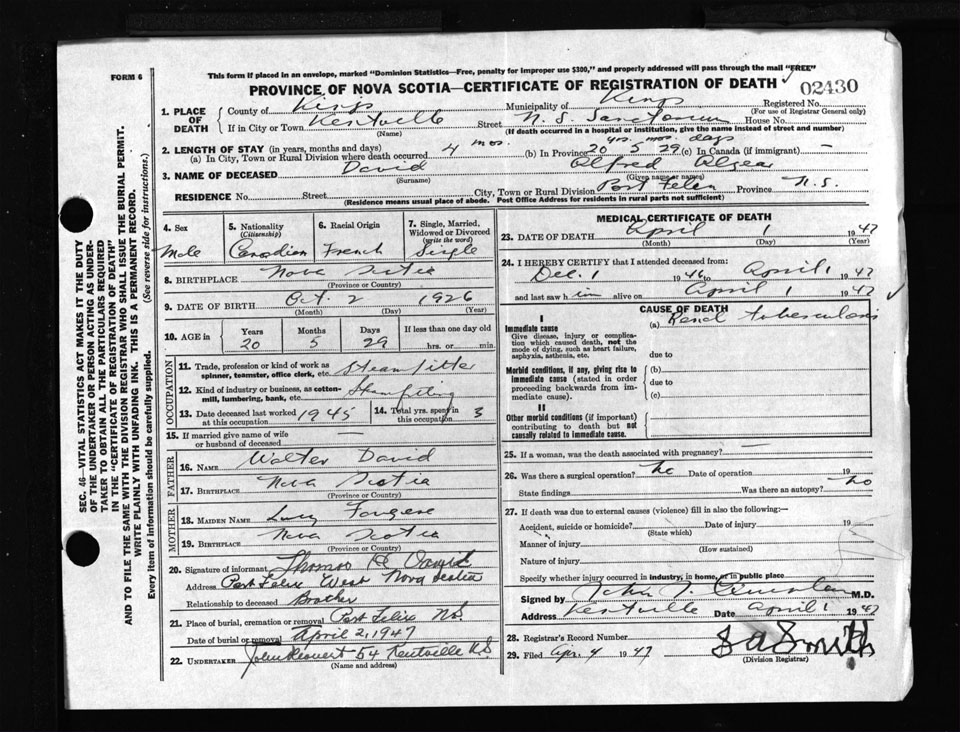 FORM 6
This form if placed in an envelope, marked "Dominion Statistics—Free, penalty for improper use $300," and properly addressed will pass through the mail "FREE"
PROVINCE OF NOVA SCOTIA—CERTIFICATE OF REGISTRATION OF DEATH
02430
1. PLACE OF DEATH
County of Kings Municipality of Kings Registered No.
(For use of Registrar General only)
If in City or Town Kentville Street N. S. Sanatorium House No.
(Name) (If death occurred in a hospital or institution, give the name instead of street and number)
2. LENGTH OF STAY (in years, months and days) yrs. mos. days
(a) In City, Town or Rural Division where death occurred 4 mos. (b) In Province 20 5 29 (c) In Canada (if immigrant) —
3. NAME OF DECEASED David Alfred
(Surname) (Given name or names)
RESIDENCE No. Street City, Town or Rural Division Port Felix Province N.S.
(Residence means usual place of abode. Post Office Address for residents in rural parts not sufficient)
4. Sex
Male
5. Nationality
(Citizenship)
Canadian
6. Racial Origin
French
7. Single, Married, Widowed or Divorced
(write the word)
Single
8. BIRTHPLACE Nova Scotia
(Province or Country)
9. DATE OF BIRTH Oct. 2 1926
(Month) (Day) (Year)
10. AGE in
Years Months Days If less than one day old
20 5 29 hrs. or min.
OCCUPATION
11. Trade, profession or kind of work as spinner, teamster, office clerk, etc. Steamfitter
12. Kind of industry or business, as cotton-mill, lumbering, bank, etc. Steamfitting
13. Date deceased last worked at this occupation 1945
14. Total yrs. spent in this occupation 3
15. If married give name of wife or husband of deceased —
FATHER
16. NAME Walter David
17. BIRTHPLACE Nova Scotia
(Province or Country)
MOTHER
18. MAIDEN NAME Lucy Fougere
19. BIRTHPLACE Nova Scotia
(Province or Country)
20. Signature of informant Thomas H David
Address Port Felix West Nova Scotia
Relationship to deceased Brother
21. Place of burial, cremation or removal Port Felix NS.
Date of burial or removal April 2, 1947
22. UNDERTAKER Kentville N.S
(Name and address)
MEDICAL CERTIFICATE OF DEATH
23. DATE OF DEATH April 1 1947
(Month) (Day) (Year)
24. I HEREBY CERTIFY that I attended deceased from:
Dec. 1 1946 to April 1 1947
and last saw him alive on April 1 1947
CAUSE OF DEATH
I
Immediate cause
Give disease, injury or complication which caused death, not the mode of dying, such as heart failure, asphyxia, asthenia, etc.
(a) Renal tuberculosis
due to
Morbid conditions, if any, giving rise to immediate cause (stated in order proceeding backwards from immediate cause).
(b)
due to
(c)
II
Other morbid conditions (if important) contributing to death but not causally related to immediate cause.
25. If a woman, was the death associated with pregnancy? —
26. Was there a surgical operation? No Date of operation 19
State findings Was there an autopsy? No
27. If death was due to external causes (violence) fill in also the following:—
Accident, suicide or homicide? Date of injury 19
(State which)
Manner of injury
(How sustained)
Nature of injury
Specify whether injury occurred in industry, in home, or in public place
Signed by M.D.
Address Kentville Date April 1 1947
28. Registrar's Record Number
29. Filed Apr. 4 1947 S A Smith
(Division Registrar)
SEC. 46—VITAL STATISTICS ACT MAKES IT THE DUTY
OF THE UNDERTAKER OR PERSON ACTING AS UNDER-
TAKER TO OBTAIN ALL THE PARTICULARS REQUIRED
IN THE "CERTIFICATE OF REGISTRATION OF DEATH"
AND TO FILE THE SAME WITH THE DIVISION REGISTRAR WHO SHALL ISSUE THE BURIAL PERMIT.
WRITE PLAINLY WITH UNFADING INK. THIS IS A PERMANENT RECORD.
Every item of information should be carefully supplied. (See reverse side for instructions.)